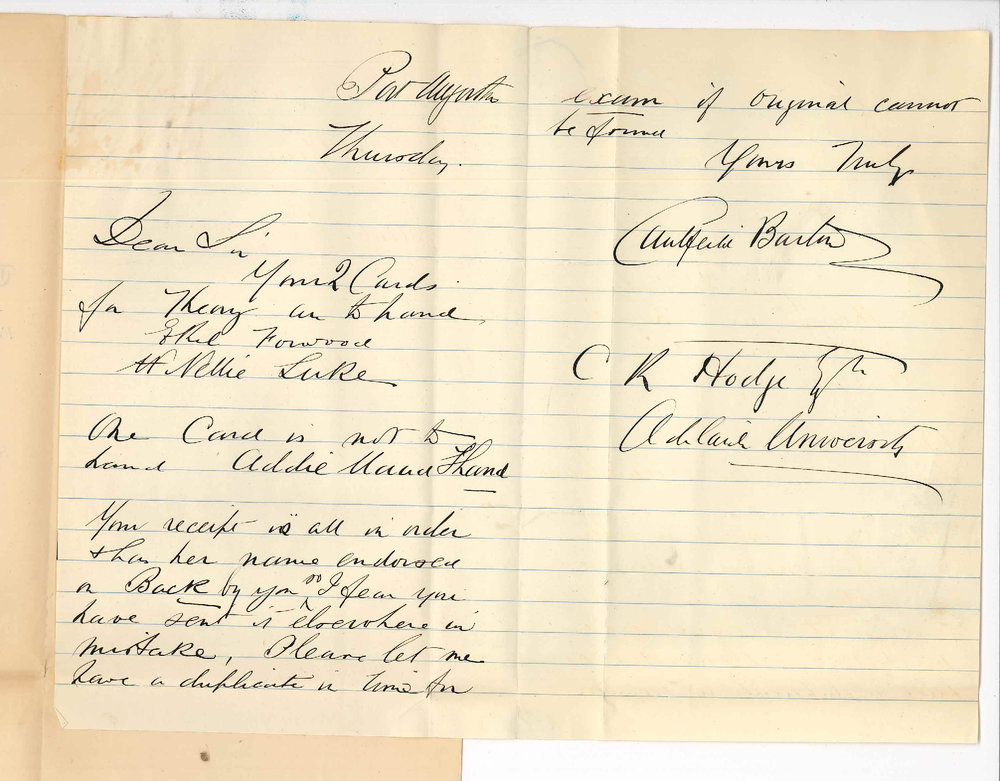 Port Augusta
Thursday.
Dear Sir
Your 2 Cards
for Theory are to hand
Ethel Forwood
H Nellie Luke
One Card is not to
hand Addie Maud
Your receipt is all in order
& has her name endorsed
on Back by you so I fear you
have sent it elsewhere in
mistake, Please let me
have a duplicate in time for
exam if original cannot
be found
Yours Truly
Barton
C R Hodge Esq
Adelaide University